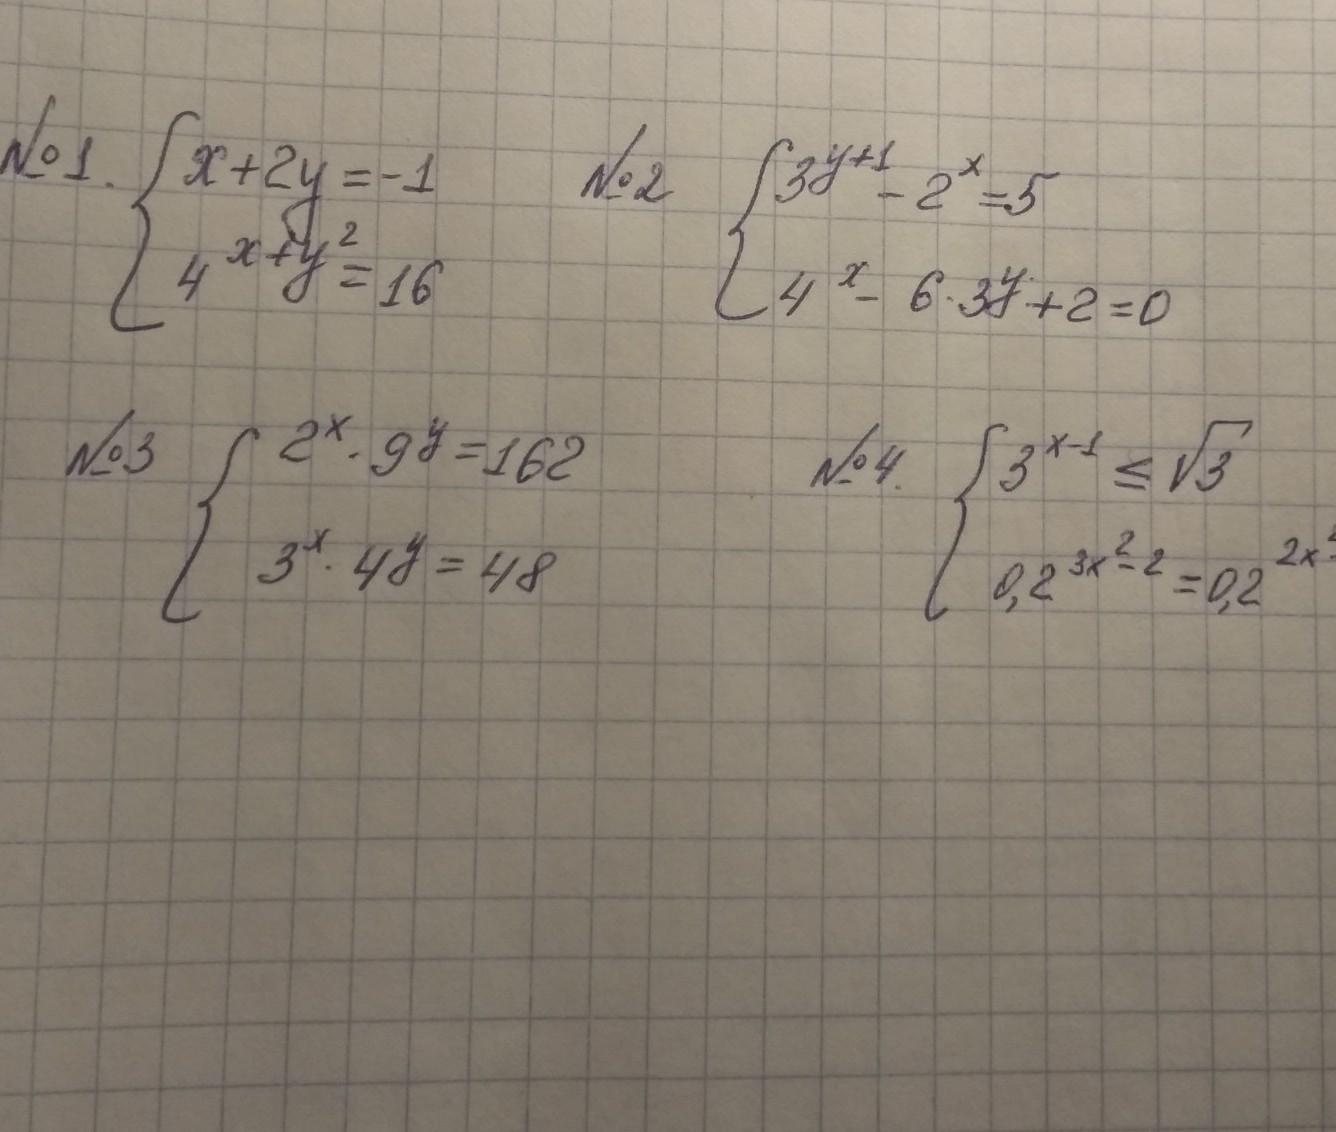 №1. { x+2y=-1
4^{x+y^2}=16
№2 { 3^{y+1}-2^x=5
4^x-6·3^y+2=0
№3 { 2^x·9^y=162
3^x·4^y=48
№4. { 3^{x-1}≤√3
0,2^{3x^2-2}=0,2^{2x^